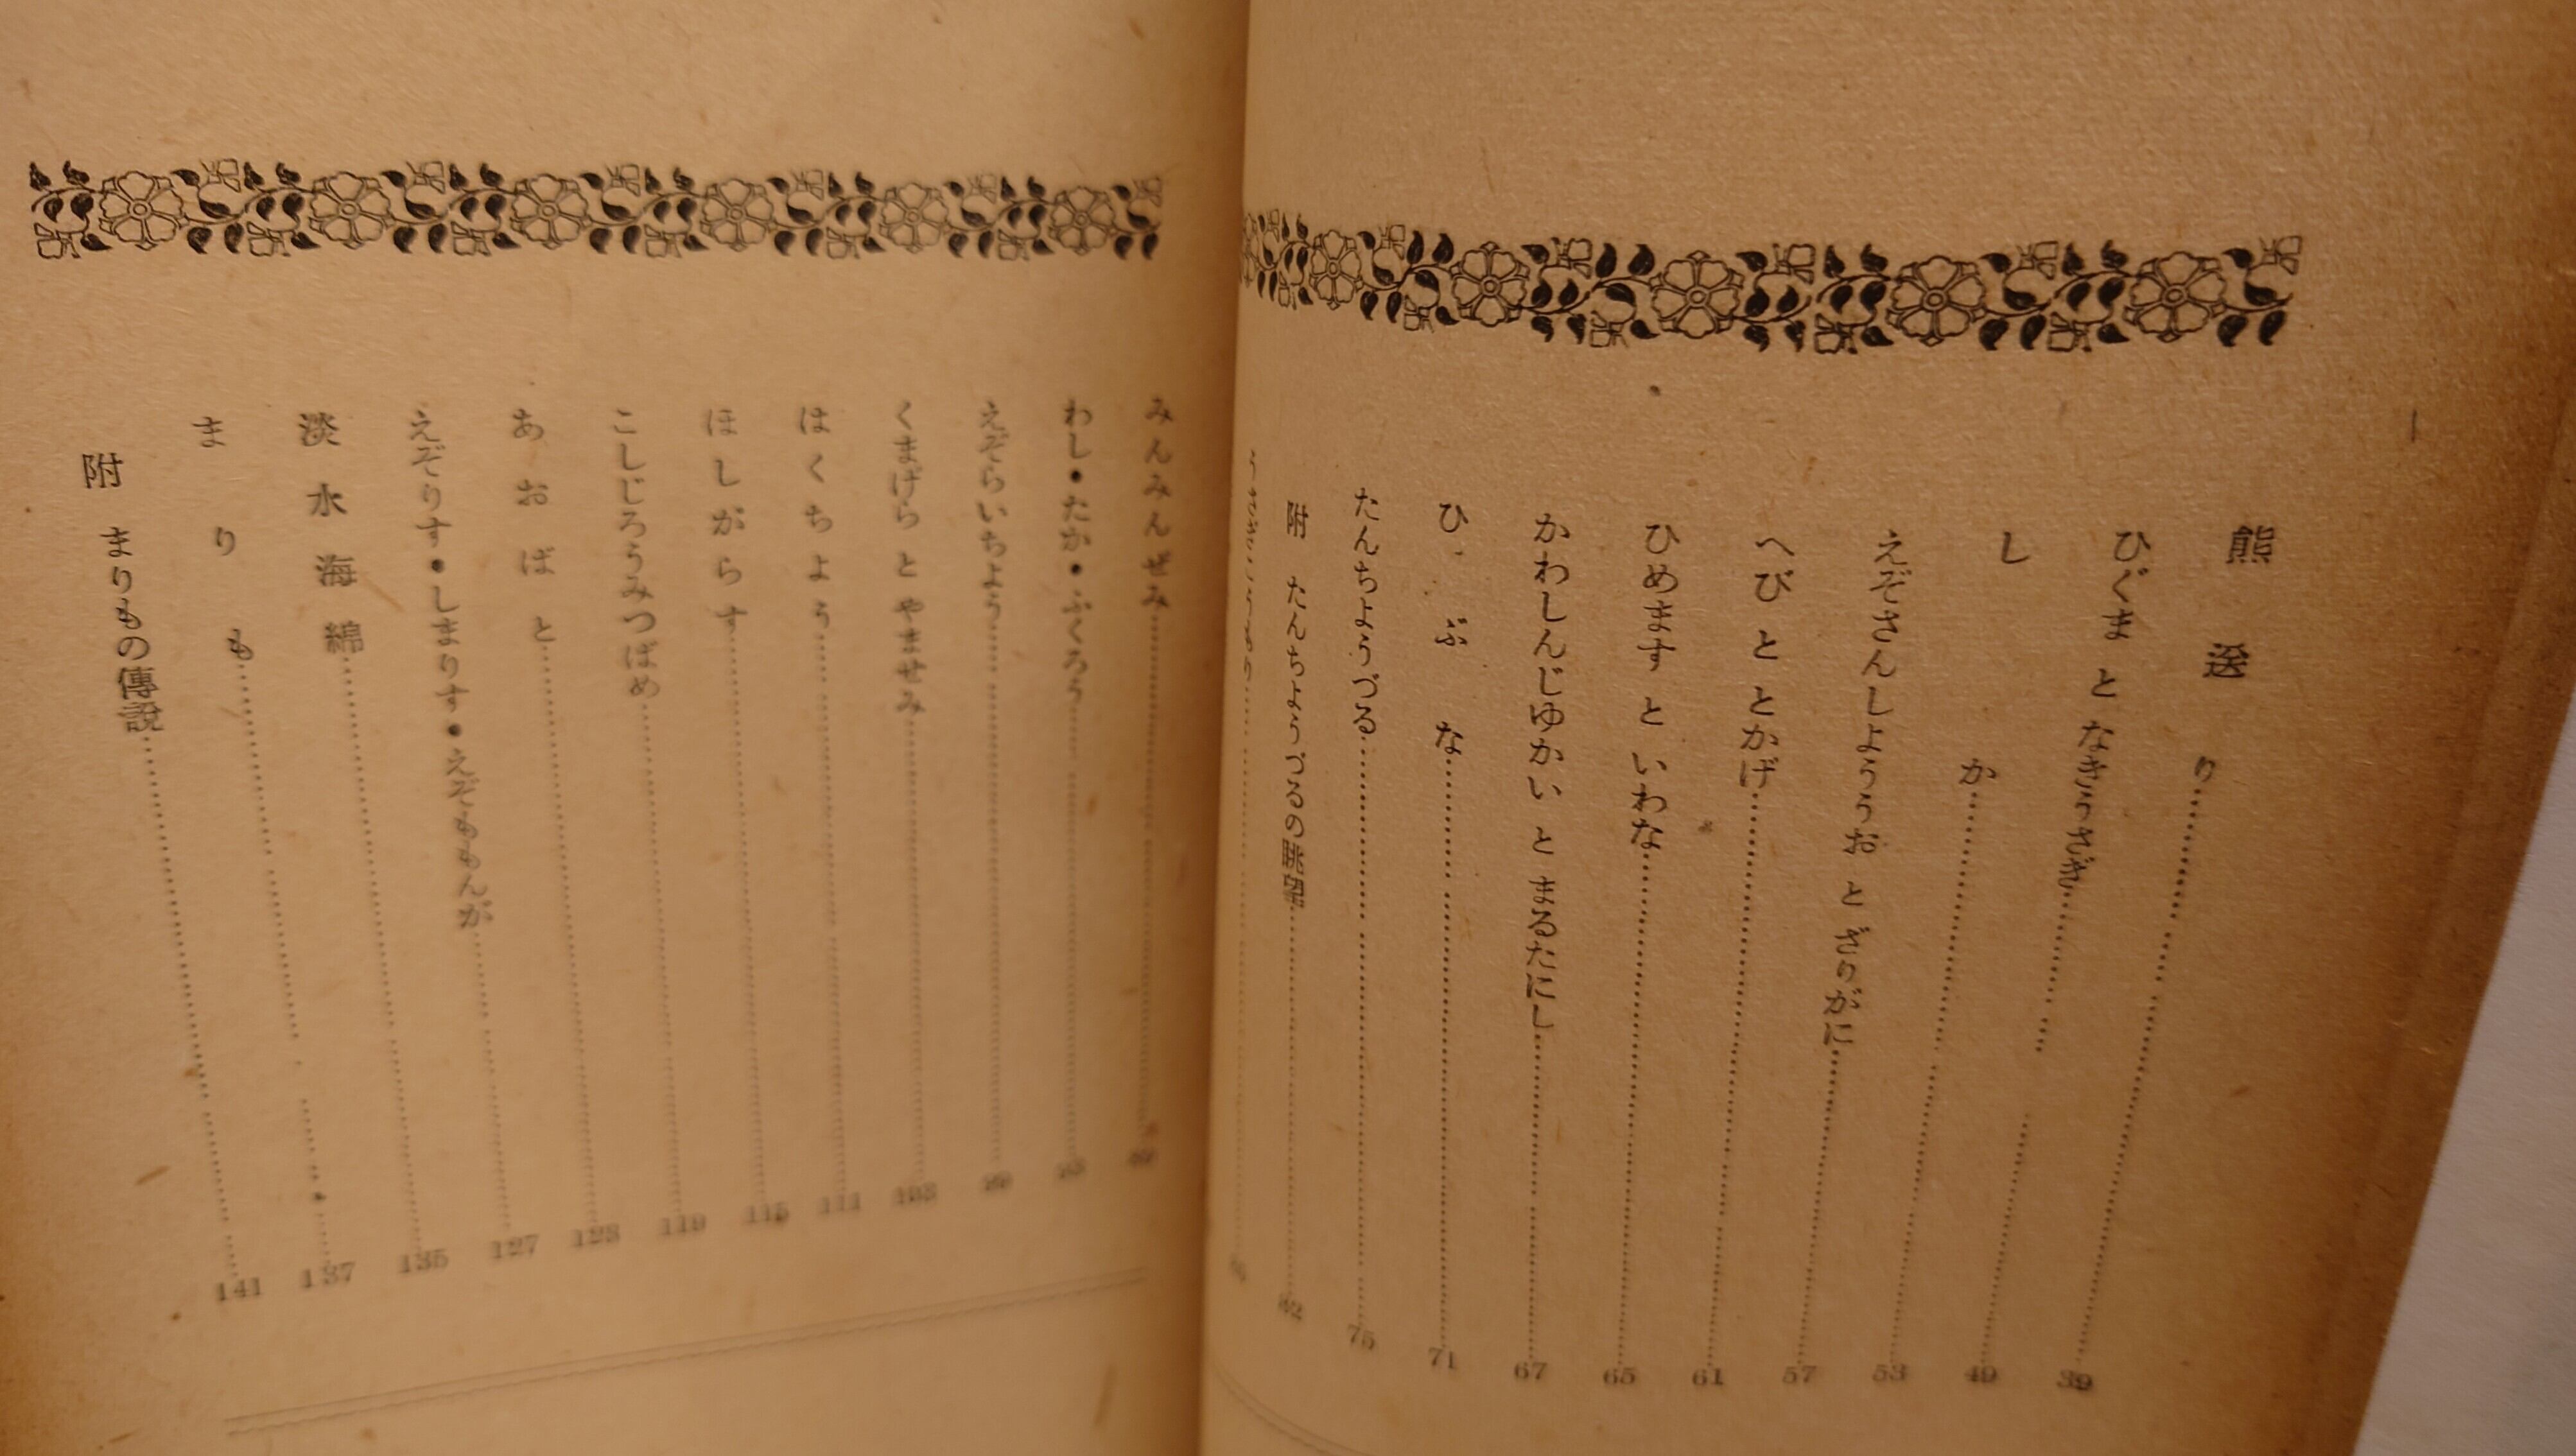 熊送り……39
ひぐま と なきうさぎ……49
しか……53
えぞさんしよううお と ざりがに……57
へび と とかげ……61
ひめます と いわな……65
かわしんじゆかい と まるたにし……67
ひぶな……71
たんちようづる……75
附 たんちようづるの眺望……82
みんみんぜみ……
わし・たか・ふくろう……
えぞらいちよう……99
くまげら と やませみ……103
はくちよう……111
ほしがらす……115
こしじろうみつばめ……119
あおばと……123
えぞりす・しまりす・えぞももんが……127
淡水海綿……135
まりも……137
附 まりもの傳説……141